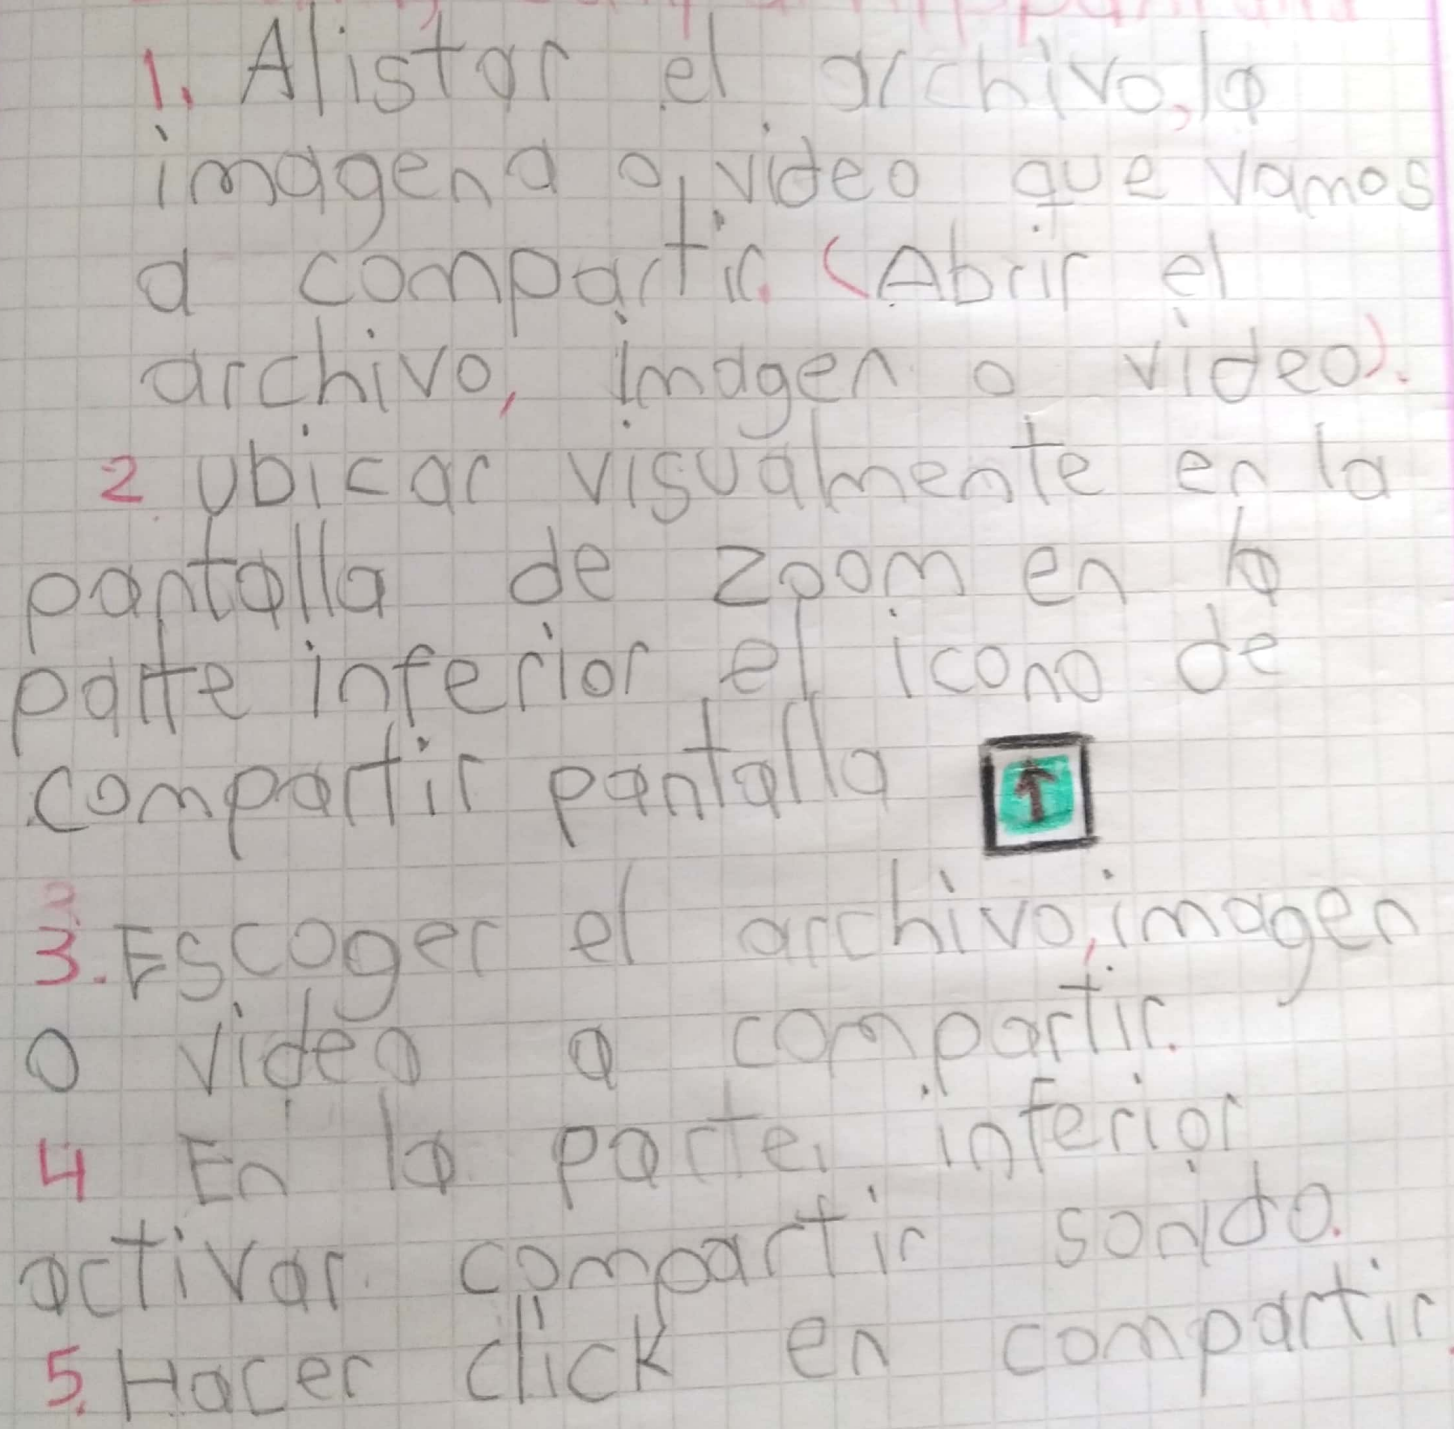 1. Alistar el archivo, la
imagen a o video que vamos
a compartir. (Abrir el
archivo, imagen o video).
2. Ubicar visualmente en la
pantalla de zoom en la
parte inferior el icono de
compartir pantalla
3. Escoger el archivo, imagen
o video a compartir.
4 En la parte inferior
activar compartir sonido.
5. Hacer click en compartir.